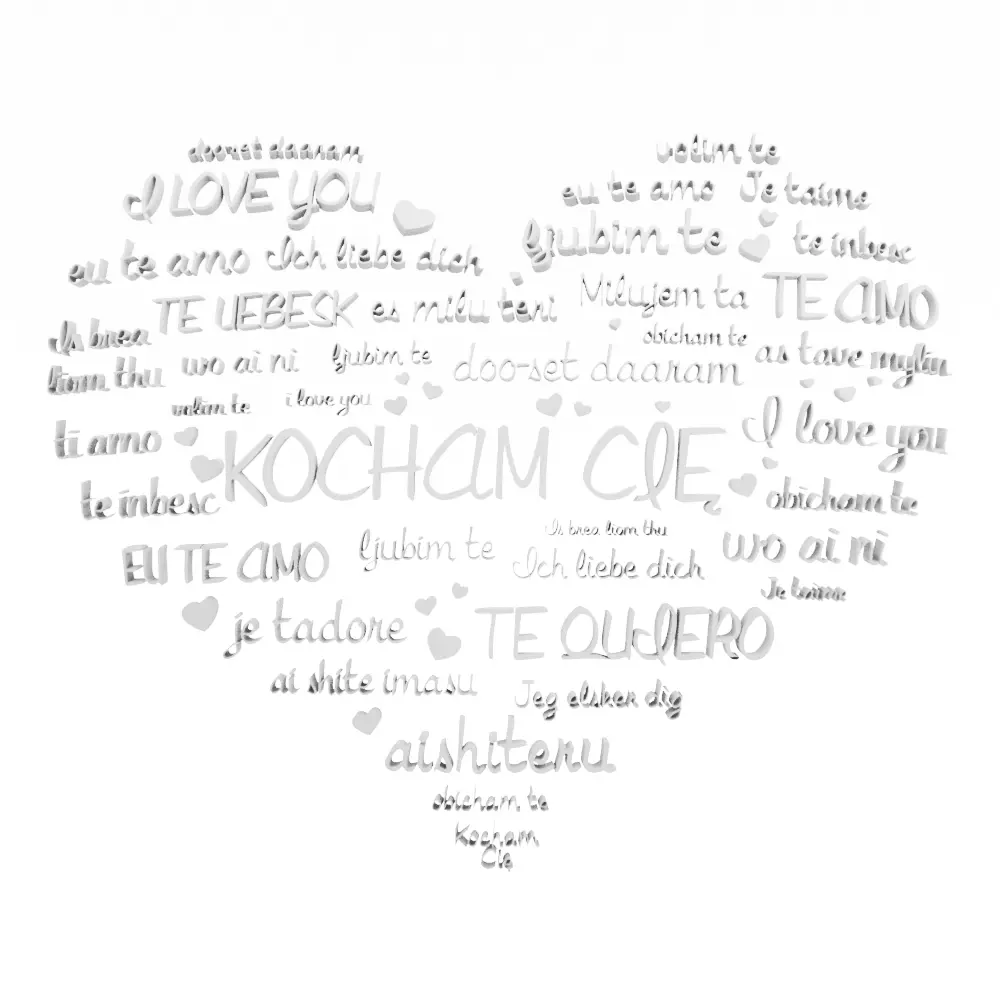 dooset daaram
volim te
I LOVE YOU
eu te amo
Je t'aime
eu te amo
Ich liebe dich
ljubim te
te inbesc
TE UEBESK
es milu tevi
Milujem ta
TE AMO
Is brea
liom thu
wo ai ni
ljubim te
doo-set daaram
obicham te
as tave myliu
volim te
i love you
ti amo
KOCHAM CIĘ
I love you
te inbesc
obicham te
EU TE AMO
ljubim te
Is brea liom thu
Ich liebe dich
wo ai ni
Je taime
je tadore
TE QUIERO
ai shite imasu
Jeg elsker dig
aishiteru
obicham te
Kocham
Cię